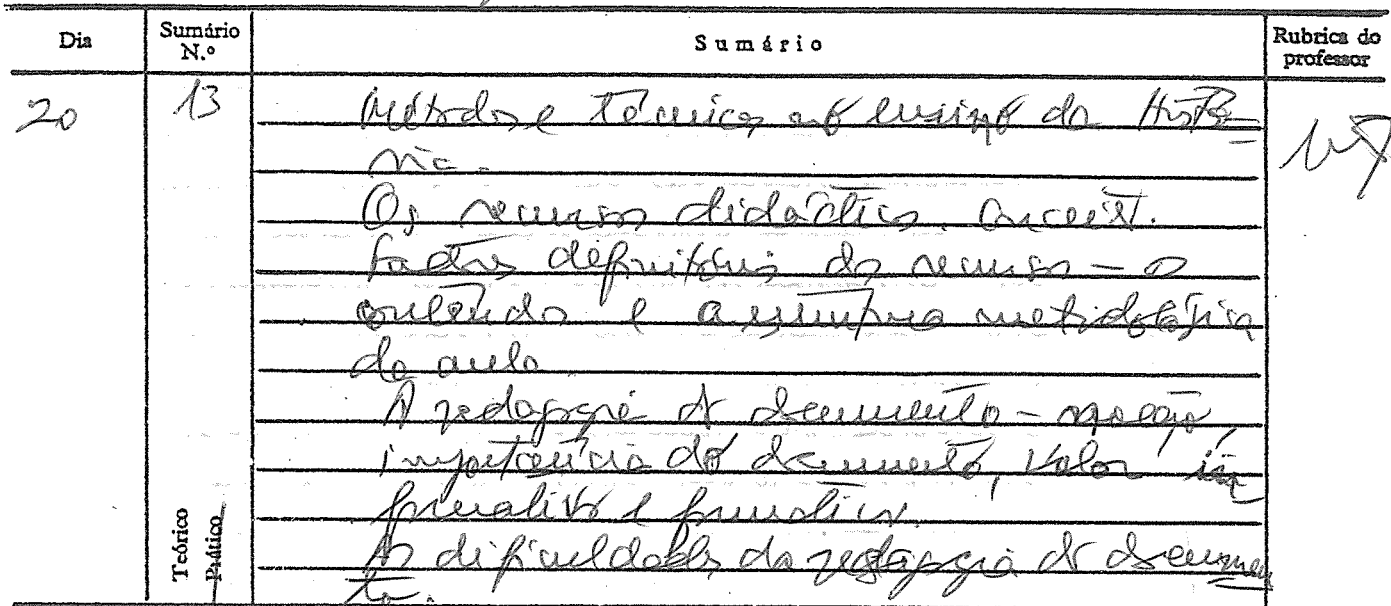 Dia Sumário N.º Sumário Rubrica do professor
20 13 Métodos e Técnicas no ensino da Histó-
ria.
Os recursos didácticos. Conceito.
Factores definitórios do recurso - o
conteúdo e a estrutura metodológica
da aula.
A pedagogia do documento - noção,
importância do documento, valor in
formativo e formativo.
As dificuldades da pedagogia do documen
to.
Teórico
Prático